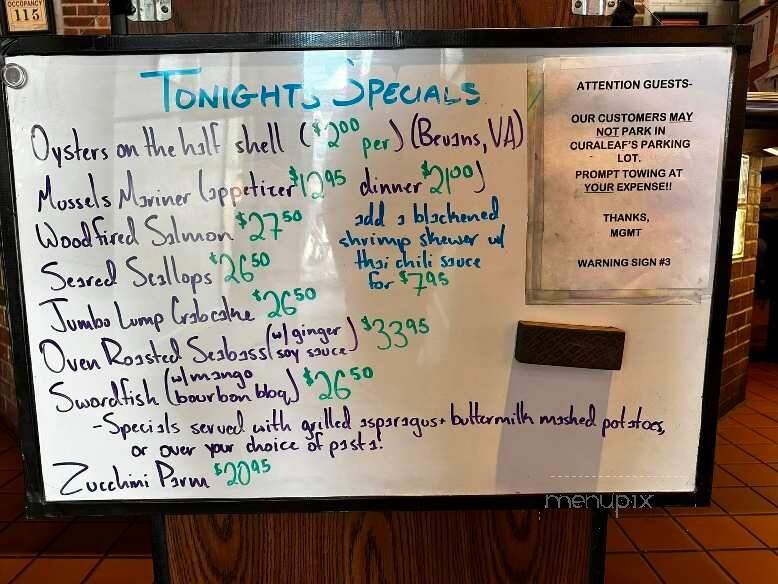 OCCUPANCY
115
TONIGHTS SPECIALS
Oysters on the half shell ($2.00 per) (Bevans, VA)
Mussels Mariner (appetizer $12.95 dinner $21.00)
Woodfired Salmon $27.50
Seared Scallops $26.50
add a blackened
shrimp skewer w/
thai chili sauce
for $7.95
Jumbo Lump Crabcake $26.50
Oven Roasted Seabass (w/ginger soy sauce) $33.95
Swordfish (w/mango bourbon bbq) $26.50
-Specials served with grilled asparagus + buttermilk mashed potatoes,
or over your choice of pasta!
Zucchini Parm $20.95
ATTENTION GUESTS-
OUR CUSTOMERS MAY
NOT PARK IN
CURALEAF'S PARKING
LOT.
PROMPT TOWING AT
YOUR EXPENSE!!
THANKS,
MGMT
WARNING SIGN #3
menupix